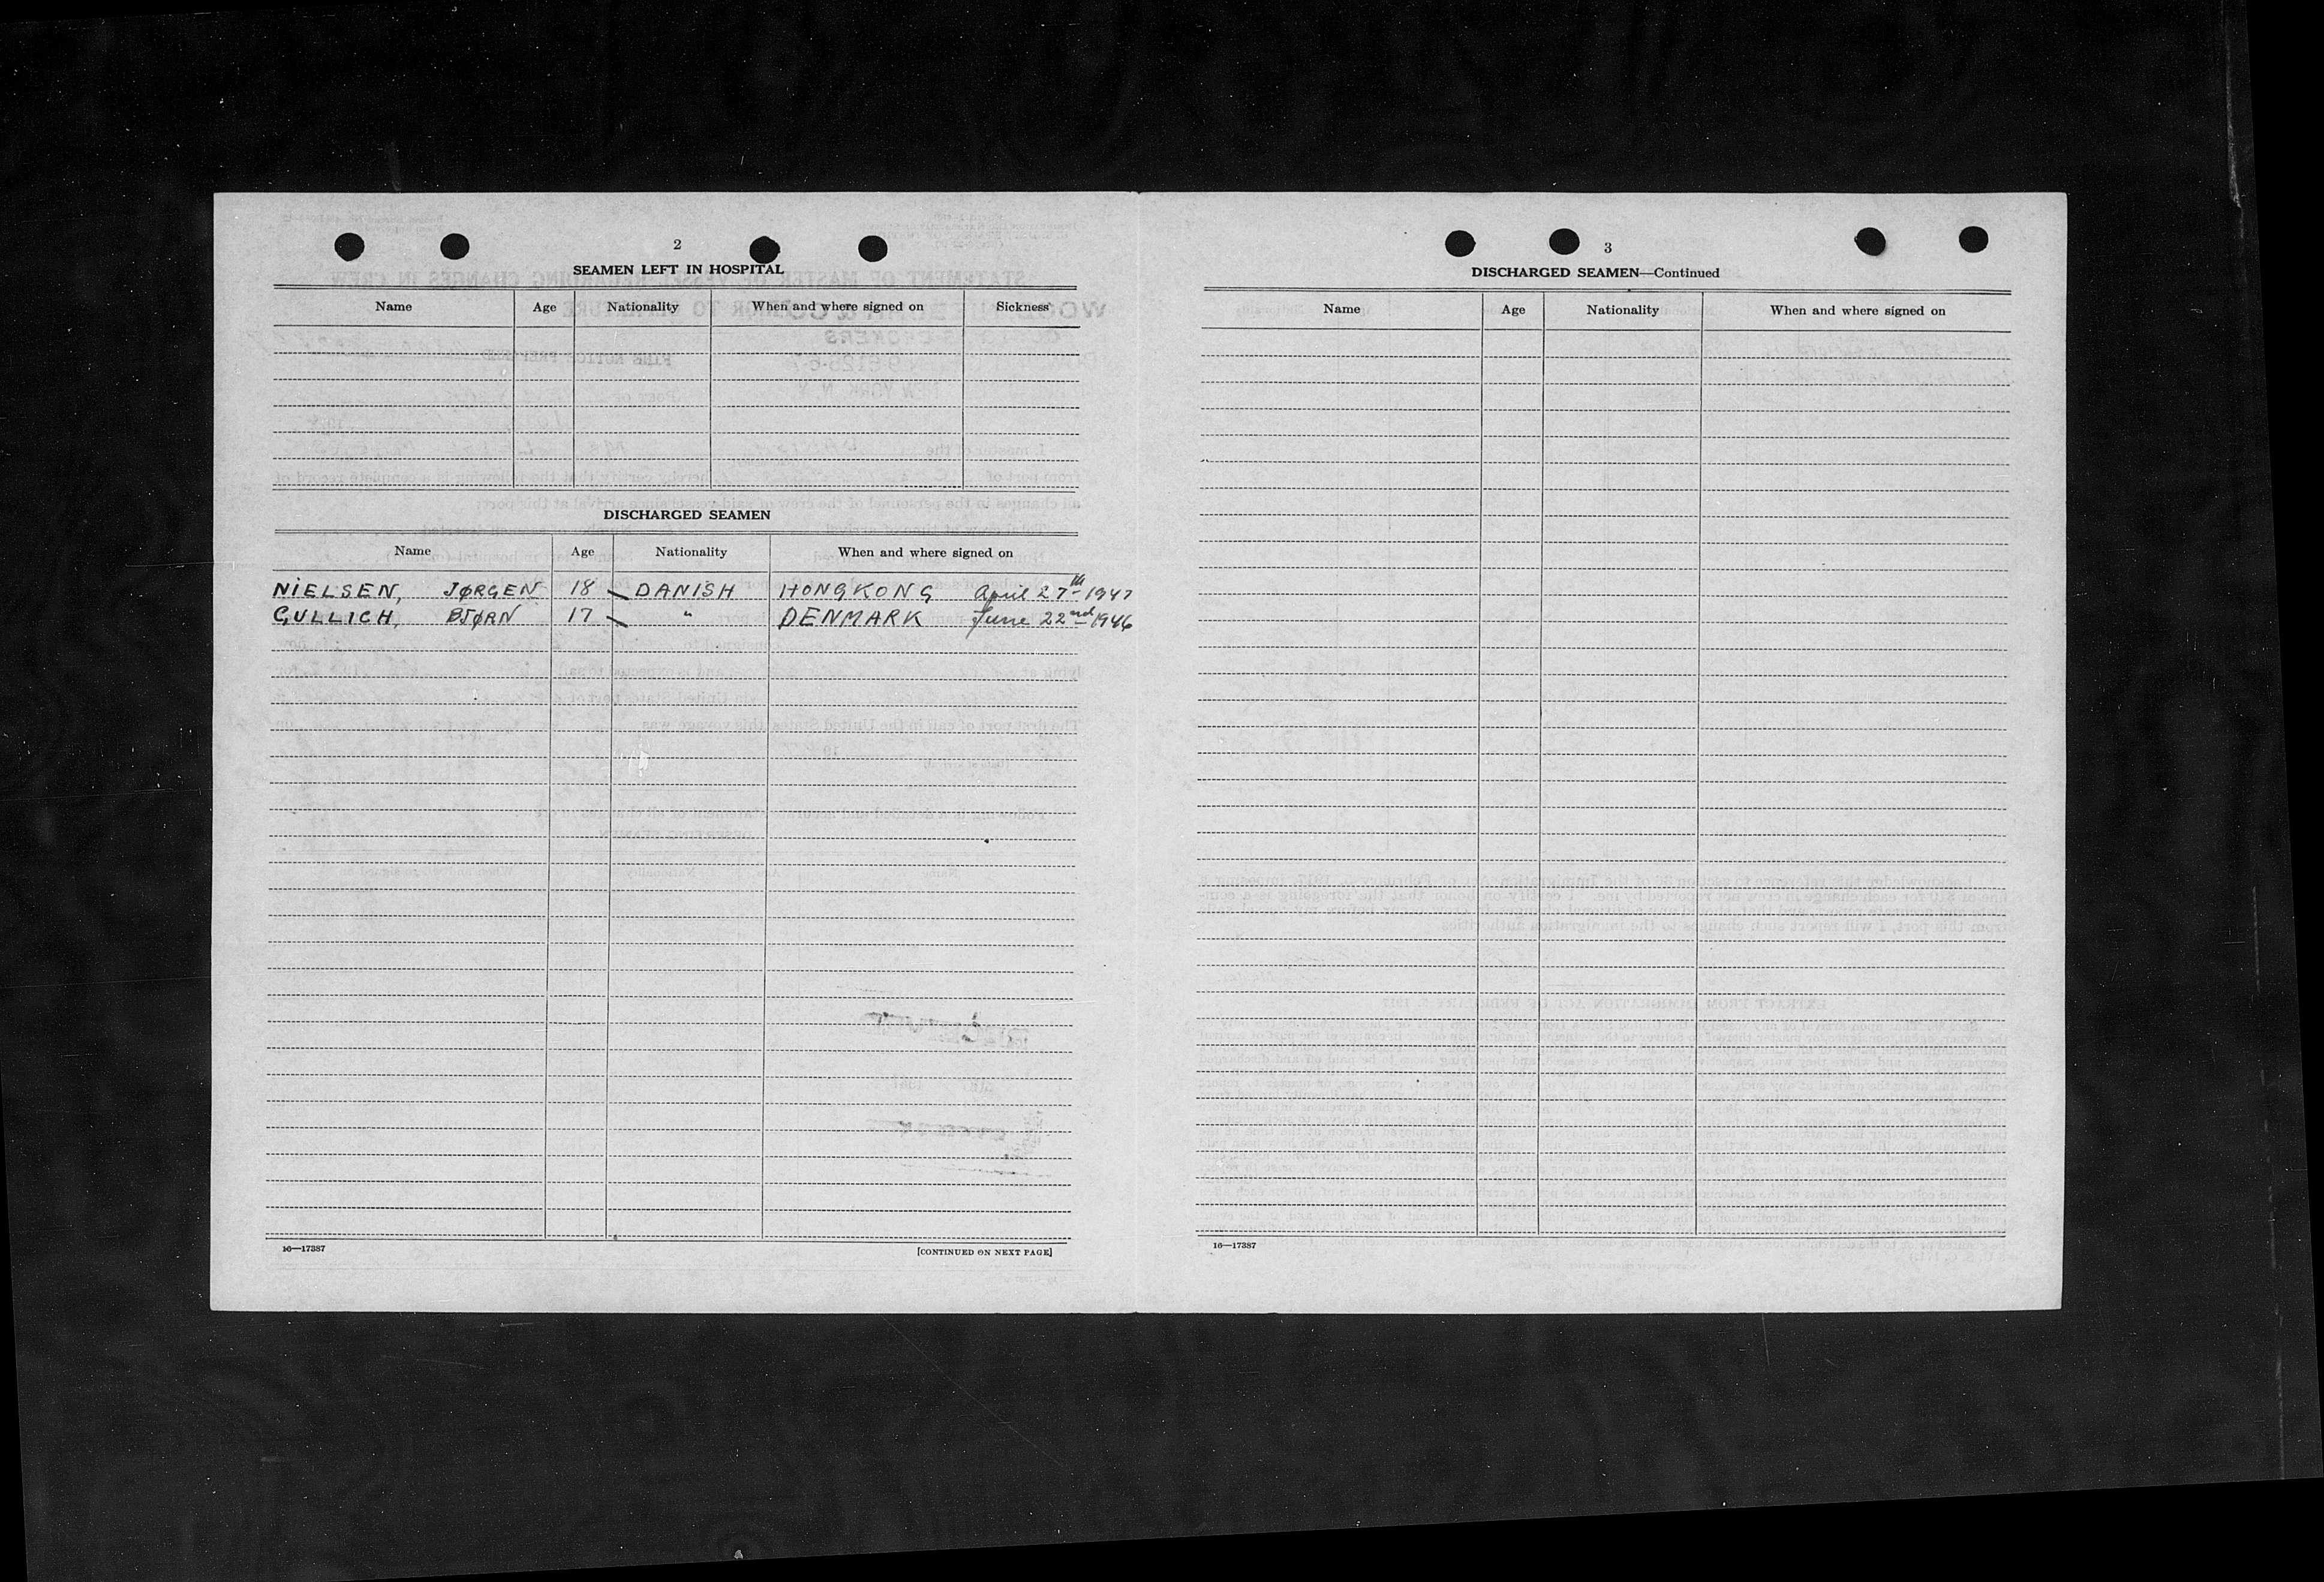 2
SEAMEN LEFT IN HOSPITAL
Name Age Nationality When and where signed on Sickness
DISCHARGED SEAMEN
Name Age Nationality When and where signed on
NIELSEN, JØRGEN 18 DANISH HONGKONG April 27th 1947
GULLICH, BJØRN 17 " DENMARK June 22nd 1946
16—17387 [CONTINUED ON NEXT PAGE]
3
DISCHARGED SEAMEN—Continued
Name Age Nationality When and where signed on
16—17387